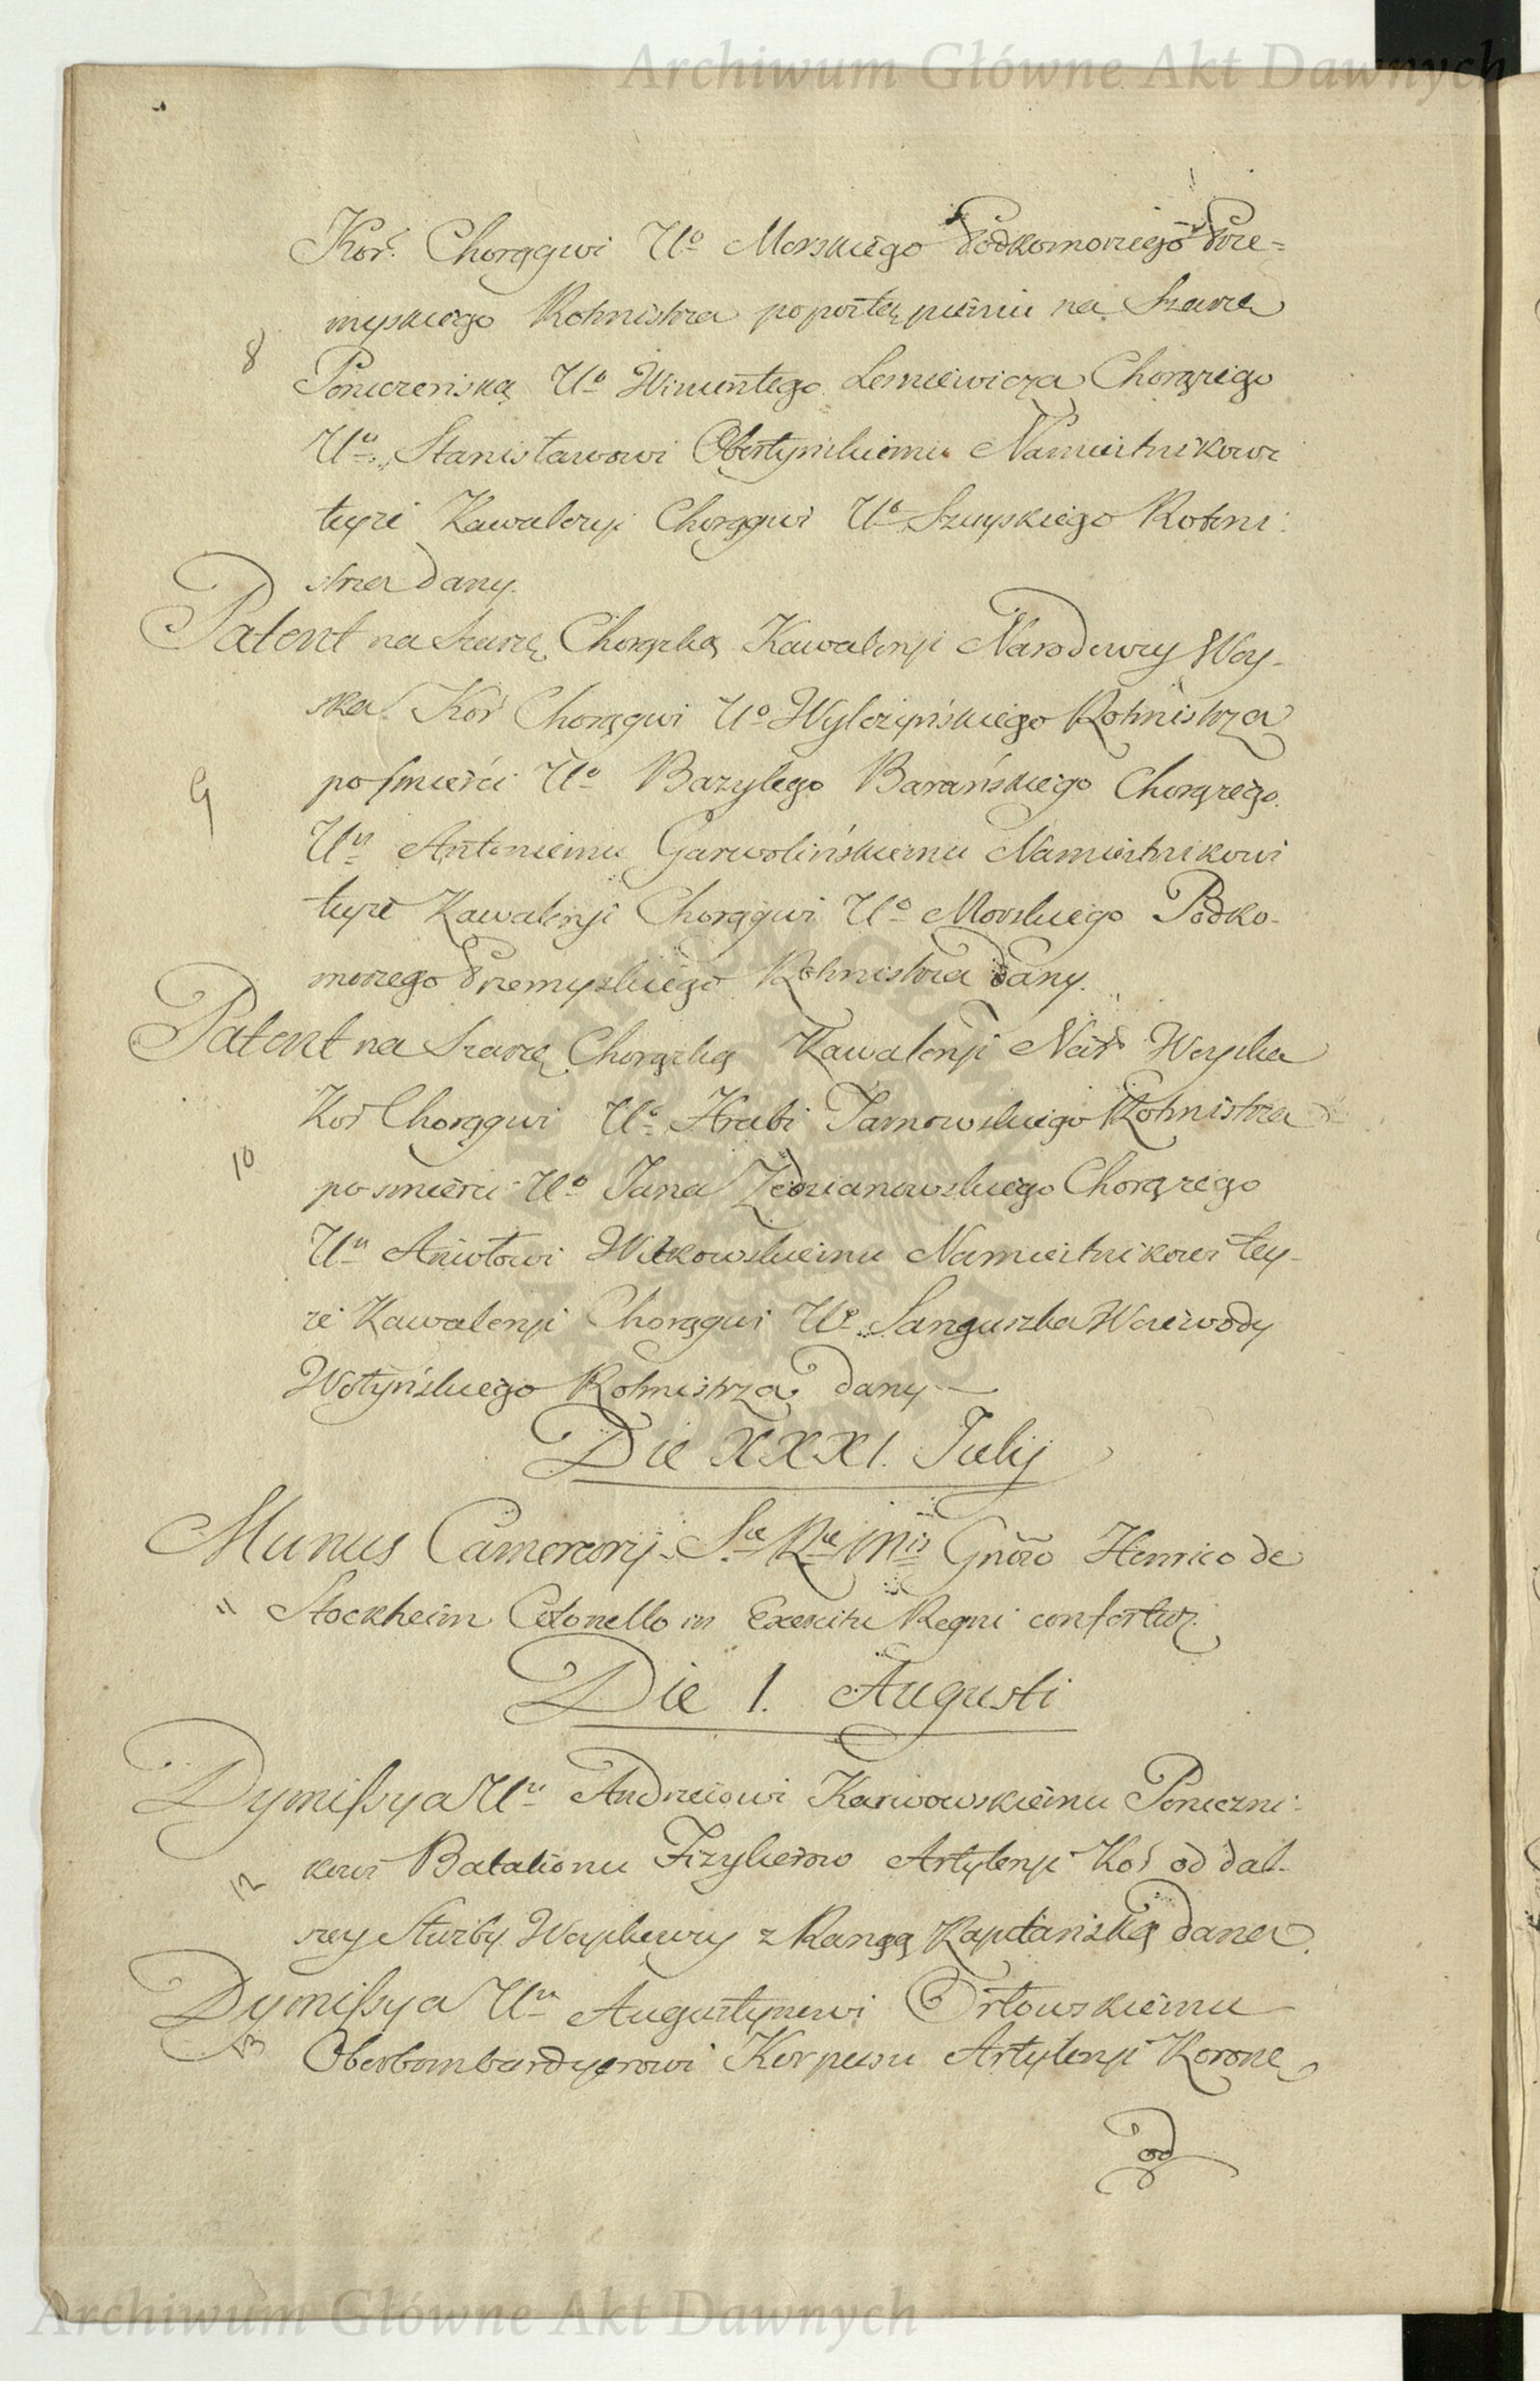 Archiwum Główne Akt Dawnych
Kor. Chorągwi Uo Morskiego Podkomorzego Prze=
myskiego Rotmistrza po postąpieniu na Szarżę
8
Poruczeńską Uo Wincentego Leniewicza Chorążego
Uu Stanisławowi Obertyńskiemu Namiestnikowi
teyże Kawaleryi Chorągwi Uo Szuyskiego Rotmi:
strza dany.
Patent na Szarżę Chorążką Kawaleryi Narodowey Woy-
ska Kor Chorągwi Uo Wylczyńskiego Rotmistrza
9
po śmierći Uo Bazylego Barańskiego Chorążego.
Uu Antoniemu Garwolińskiemu Namiestnikowi
teyże Kawaleryi Chorągwi Uo Morskiego Podko-
morzego Przemyskiego Rotmistrza dany.
Patent na Szarżę Chorążką Kawaleryi Nar Woyska
Kor Chorągwi Uo Hrabi Tarnowskiego Rotmistrza
10
po smierci Uo Jana Zedzianowskiego Chorążego
Uu Aniołowi Witkowskiemu Namiestnikowi tey-
że Kawaleryi Chorągwi Uo Sanguszka Woiewody
Wołyńskiego Rotmistrza dany —
Die XXXI. Julij
Munus Camerarij Sae Rae Mtis Gnõso Henrico de
11
Stockheim Colonello in Exercitu Regni confertur.
Die 1. Augusti
Dymissya Uu Andrzeiowi Karwowskiemu Poruczni-
12
kowi Batalionu Fizylierow Artyleryi Kor od dal-
szey Służby Woyskowey z Rangą Kapitańską dana.
Dymissya Uu Augustynowi Orłowskiemu
13
Oberbombardyerowi Korpusu Artyleryi Koronę
od
Archiwum Główne Akt Dawnych